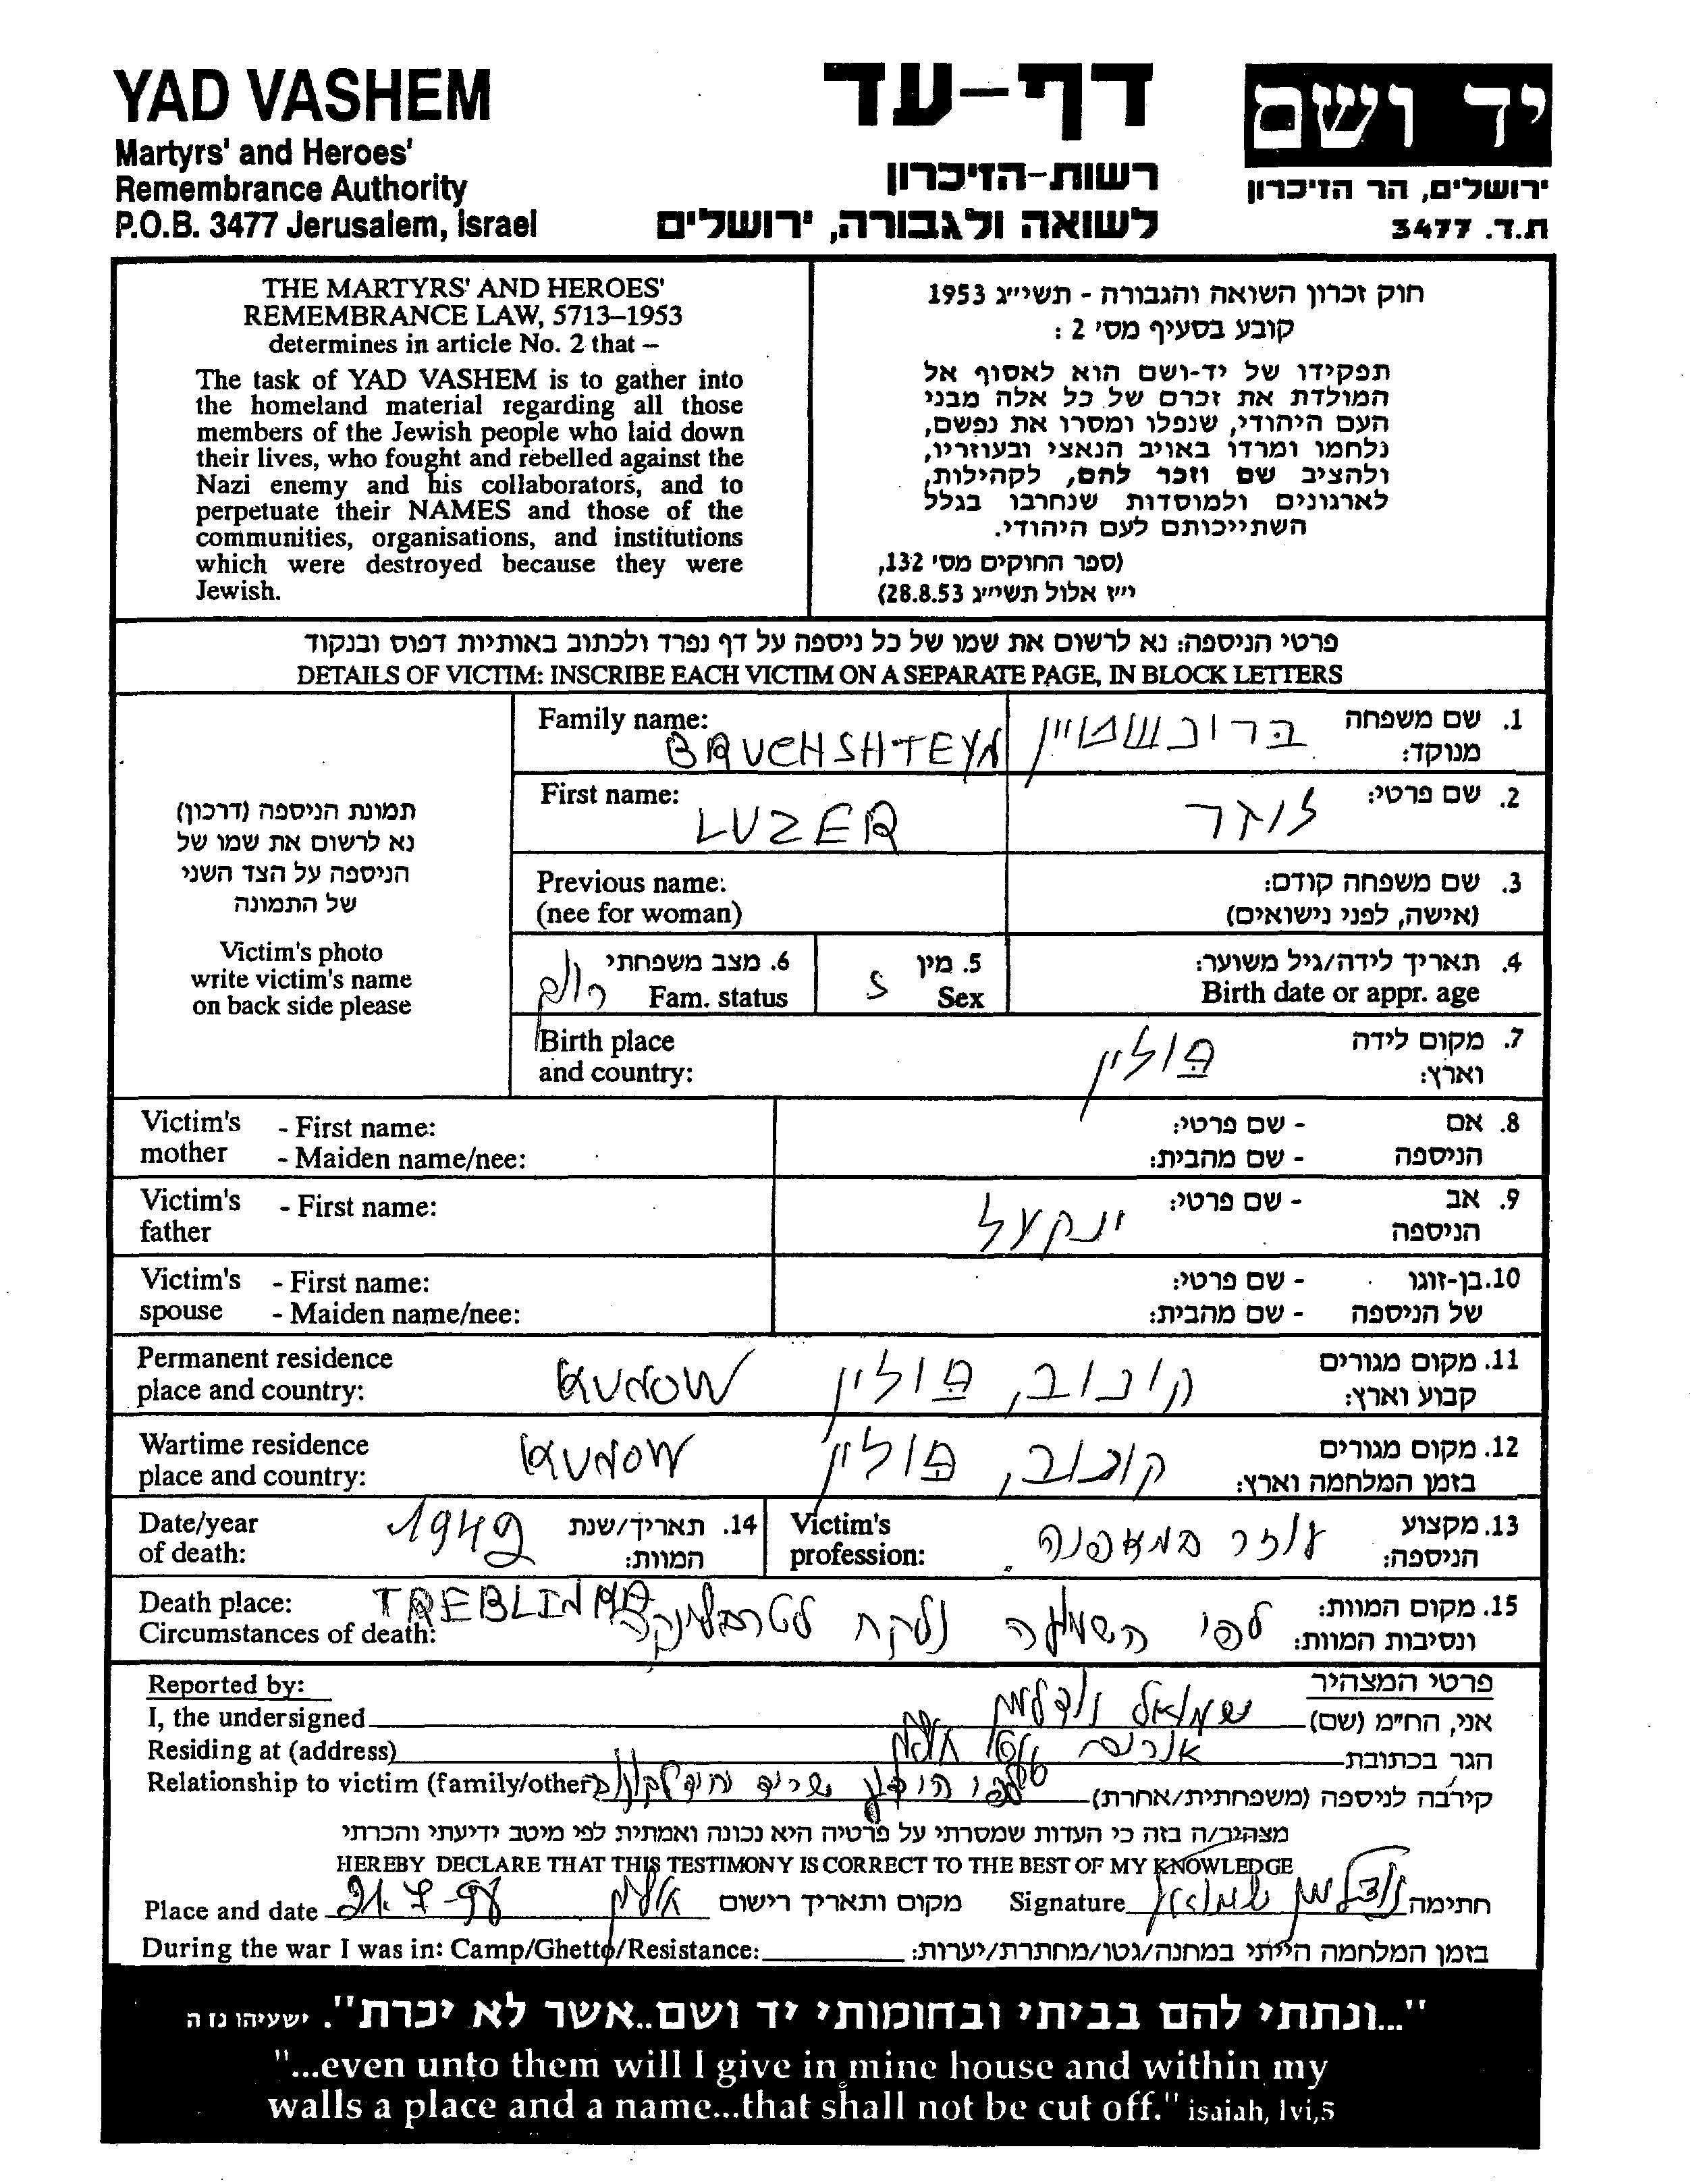 YAD VASHEM
Martyrs' and Heroes'
Remembrance Authority
P.O.B. 3477 Jerusalem, Israel
דף-עד
רשות-הזיכרון
לשואה ולגבורה, ירושלים
יד ושם
ירושלים, הר הזיכרון
ת.ד. 3477
THE MARTYRS' AND HEROES'
REMEMBRANCE LAW, 5713–1953
determines in article No. 2 that –
The task of YAD VASHEM is to gather into
the homeland material regarding all those
members of the Jewish people who laid down
their lives, who fought and rebelled against the
Nazi enemy and his collaborators, and to
perpetuate their NAMES and those of the
communities, organisations, and institutions
which were destroyed because they were
Jewish.
חוק זכרון השואה והגבורה - תשי"ג 1953
קובע בסעיף מס' 2 :
תפקידו של יד-ושם הוא לאסוף אל
המולדת את זכרם של כל אלה מבני
העם היהודי, שנפלו ומסרו את נפשם,
נלחמו ומרדו באויב הנאצי ובעוזריו,
ולהציב שם וזכר להם, לקהילות,
לארגונים ולמוסדות שנחרבו בגלל
השתייכותם לעם היהודי.
(ספר החוקים מס' 132,
י"ז אלול תשי"ג 28.8.53)
פרטי הניספה: נא לרשום את שמו של כל ניספה על דף נפרד ולכתוב באותיות דפוס ובנקוד
DETAILS OF VICTIM: INSCRIBE EACH VICTIM ON A SEPARATE PAGE, IN BLOCK LETTERS
תמונת הניספה (דרכון)
נא לרשום את שמו של
הניספה על הצד השני
של התמונה
Victim's photo
write victim's name
on back side please
Family name: BRUCHSHTEYN
1. שם משפחה מנוקד: ברוכשטיין
First name: LUZER
2. שם פרטי: לוזר
Previous name:
(nee for woman)
3. שם משפחה קודם:
(אישה, לפני נישואים)
4. תאריך לידה/גיל משוער:
Birth date or appr. age
5. מין
Sex
6. מצב משפחתי
Fam. status
Birth place
and country:
7. מקום לידה
וארץ: פולין
Victim's mother - First name:
- Maiden name/nee:
8. אם הניספה - שם פרטי:
- שם מהבית:
Victim's father - First name:
9. אב הניספה - שם פרטי: ינקעל
Victim's spouse - First name:
- Maiden name/nee:
10. בן-זוגו של הניספה - שם פרטי:
- שם מהבית:
Permanent residence
place and country: KUNOW
11. מקום מגורים
קבוע וארץ: קונוב, פולין
Wartime residence
place and country: KUNOW
12. מקום מגורים
בזמן המלחמה וארץ: קונוב, פולין
Date/year
of death: 1942
14. תאריך/שנת
המוות:
Victim's
profession:
13. מקצוע
הניספה: עוזר במאפיה
Death place: TREBLINKA
Circumstances of death:
15. מקום המוות:
ונסיבות המוות: לפי השמועה נלקח לטרבלינקה
Reported by:
פרטי המצהיר
I, the undersigned
אני, הח"מ (שם) שמואל
Residing at (address)
הגר בכתובת
Relationship to victim (family/other)
קירבה לניספה (משפחתית/אחרת)
מצהיר/ה בזה כי העדות שמסרתי על פרטיה היא נכונה ואמתית לפי מיטב ידיעתי והכרתי
HEREBY DECLARE THAT THIS TESTIMONY IS CORRECT TO THE BEST OF MY KNOWLEDGE
Place and date
מקום ותאריך רישום
Signature
חתימה
During the war I was in: Camp/Ghetto/Resistance:
בזמן המלחמה הייתי במחנה/גטו/מחתרת/יערות:
"...ונתתי להם בביתי ובחומותי יד ושם..אשר לא יכרת". ישעיהו נז ה
"...even unto them will I give in mine house and within my
walls a place and a name...that shall not be cut off." isaiah, lvi,5